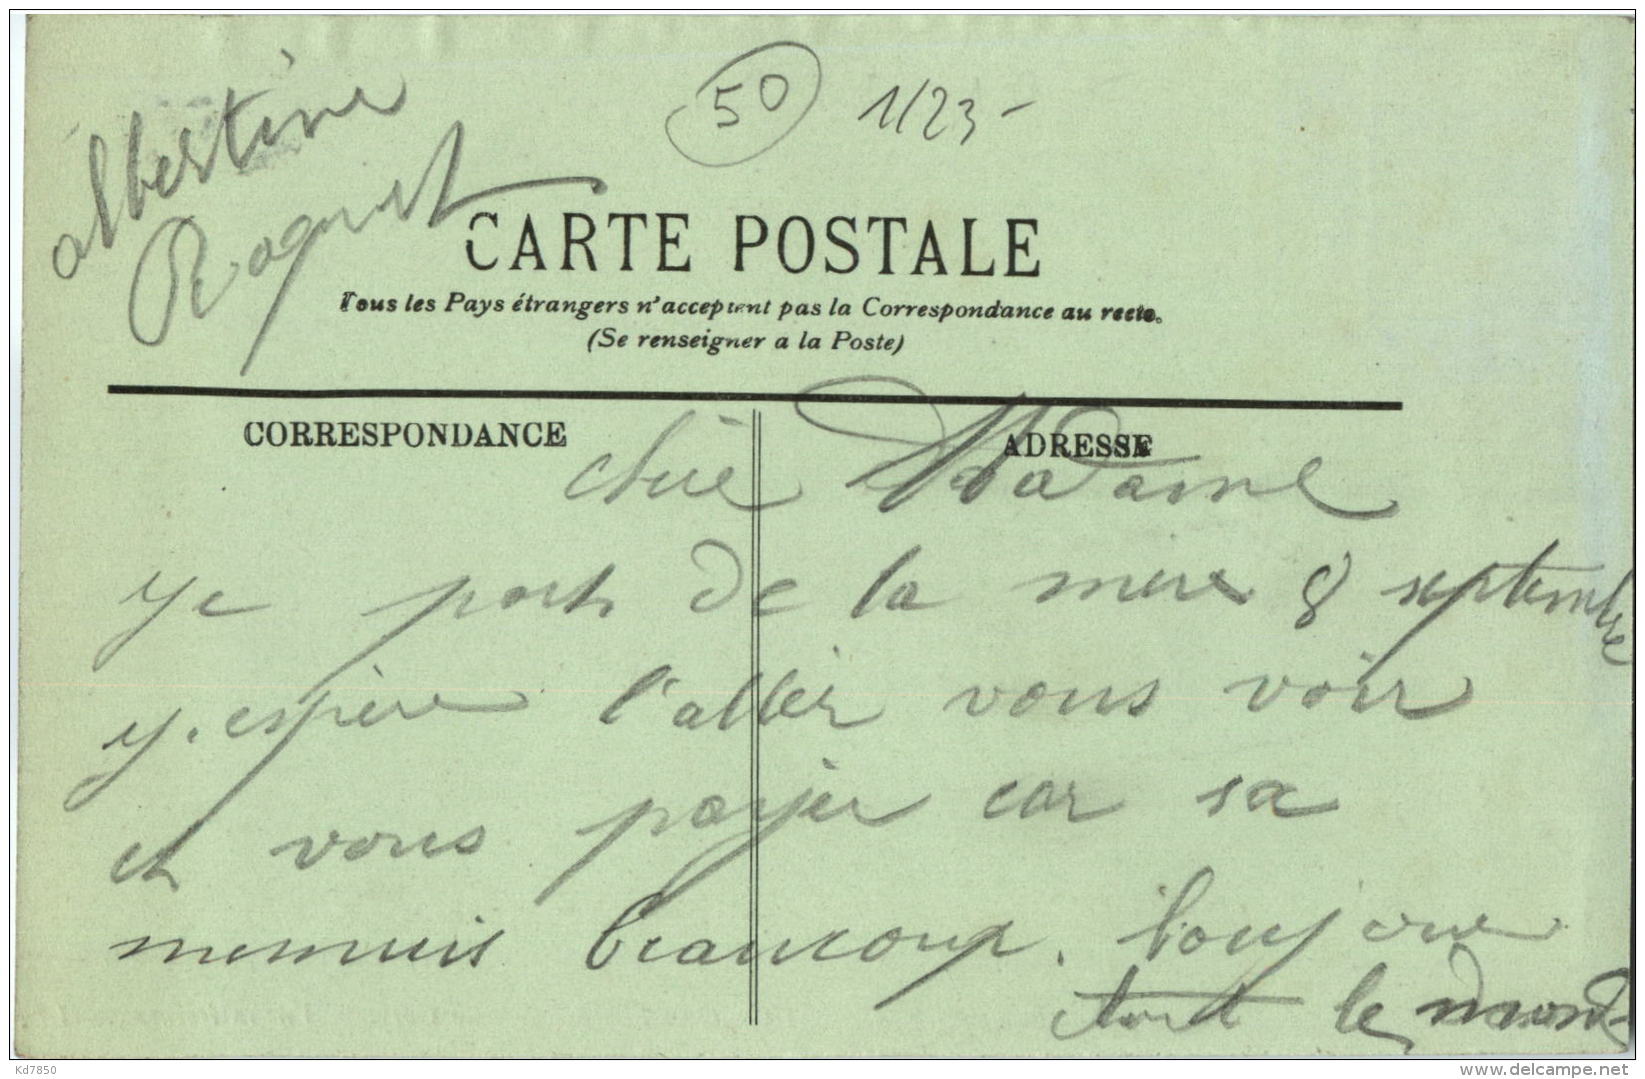 albertine
Roquet
50 1/23-
CARTE POSTALE
Tous les Pays étrangers n'acceptent pas la Correspondance au recto.
(Se renseigner a la Poste)
CORRESPONDANCE
ADRESSE
chèe Madame
ye parts de la mere 8 septembre
y. espère l'aller vous voir
et vous payer car sa
mennuis beaucoup. bonjour
tout le mond
Kd7850
delcampe.net